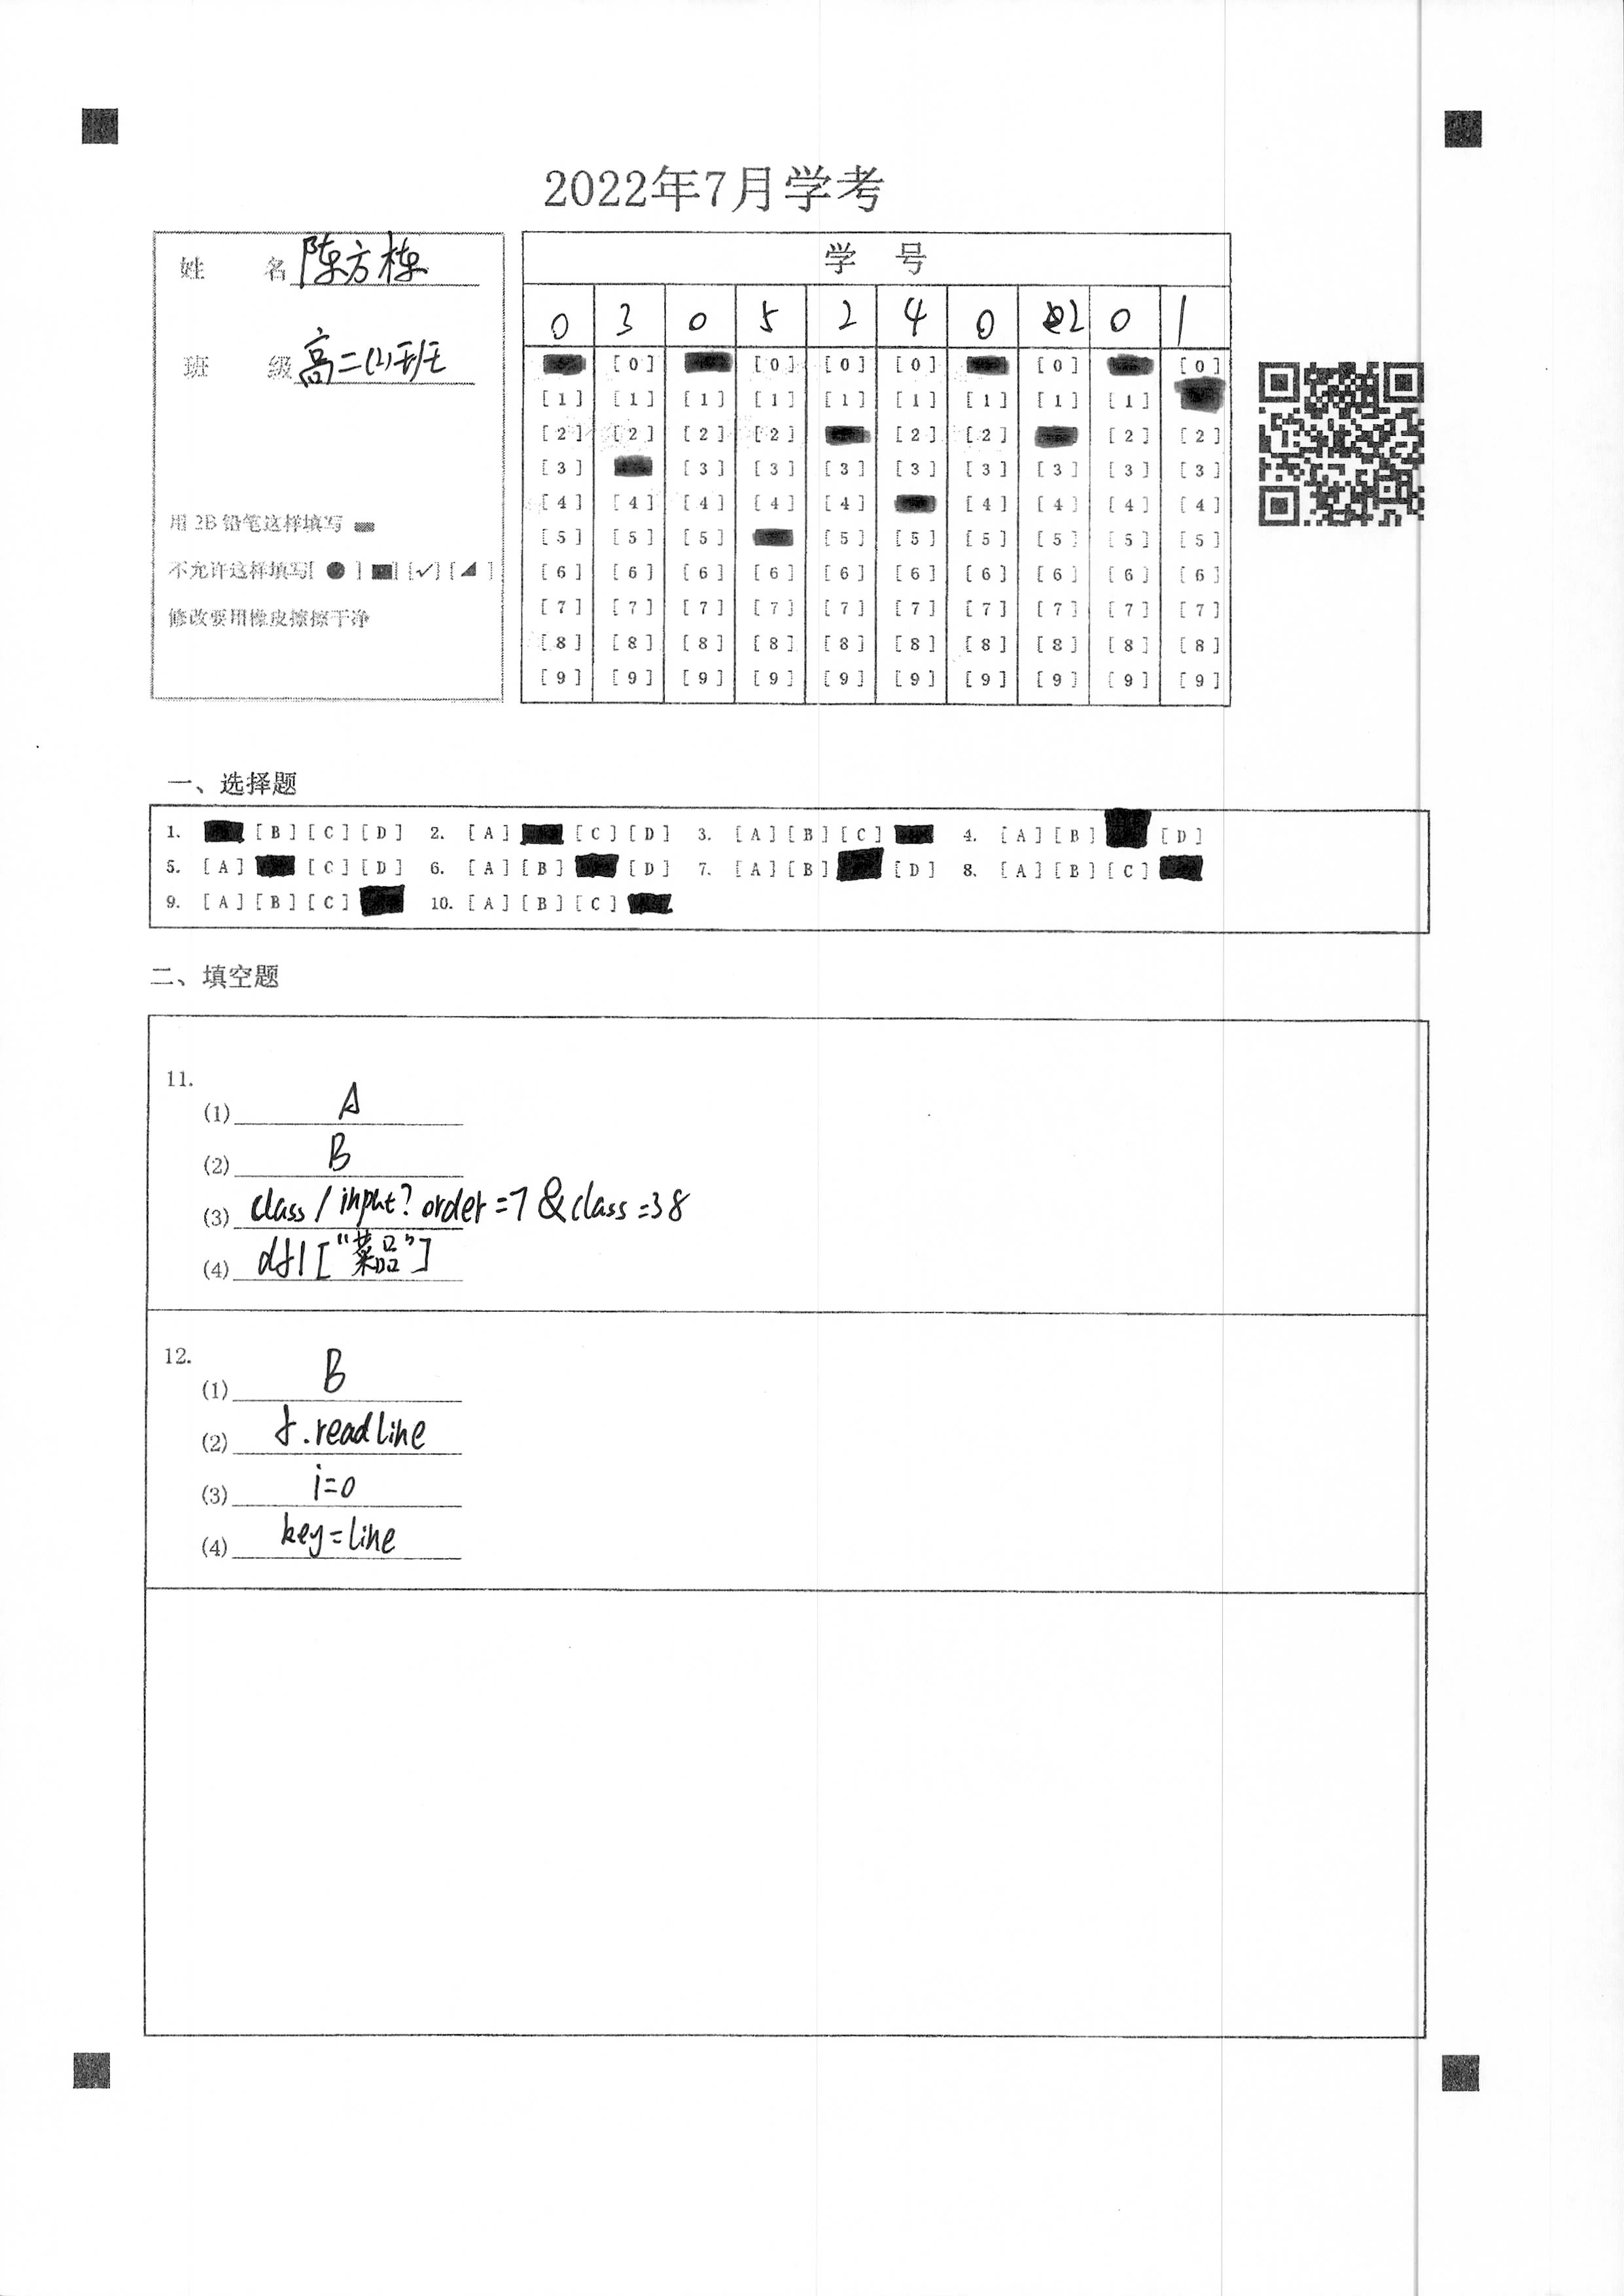 2022年7月学考
姓 名 陈方栋
班 级 高二(2)班
用 2B 铅笔这样填写
不允许这样填写[ ● ] ■] [✓] [◢ ]
修改要用橡皮擦擦干净
学 号
0 3 0 5 2 4 0 2 0 1
[0] [0] [0] [0] [0] [0]
[1] [1] [1] [1] [1] [1] [1] [1] [1]
[2] [2] [2] [2] [2] [2] [2] [2]
[3] [3] [3] [3] [3] [3] [3] [3] [3]
[4] [4] [4] [4] [4] [4] [4] [4] [4]
[5] [5] [5] [5] [5] [5] [5] [5] [5]
[6] [6] [6] [6] [6] [6] [6] [6] [6] [6]
[7] [7] [7] [7] [7] [7] [7] [7] [7] [7]
[8] [8] [8] [8] [8] [8] [8] [8] [8] [8]
[9] [9] [9] [9] [9] [9] [9] [9] [9] [9]
一、选择题
1. [B] [C] [D] 2. [A] [C] [D] 3. [A] [B] [C] 4. [A] [B] [D]
5. [A] [C] [D] 6. [A] [B] [D] 7. [A] [B] [D] 8. [A] [B] [C]
9. [A] [B] [C] 10. [A] [B] [C]
二、填空题
11.
(1) A
(2) B
(3) class/input?order=7&class=38
(4) df1["菜品"]
12.
(1) B
(2) f.readline
(3) i=0
(4) key=line